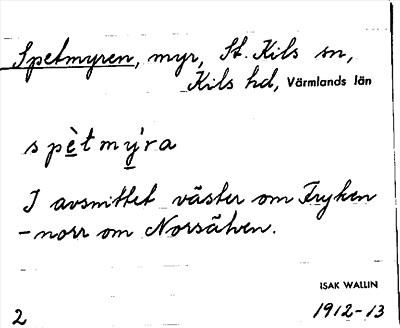 Spetmyren, myr, St. Kils sn,
Kils hd, Värmlands län
spètmý̱ra
I avsnittet väster om Fryken
- norr om Norsälven.
ISAK WALLIN
2 1912-13